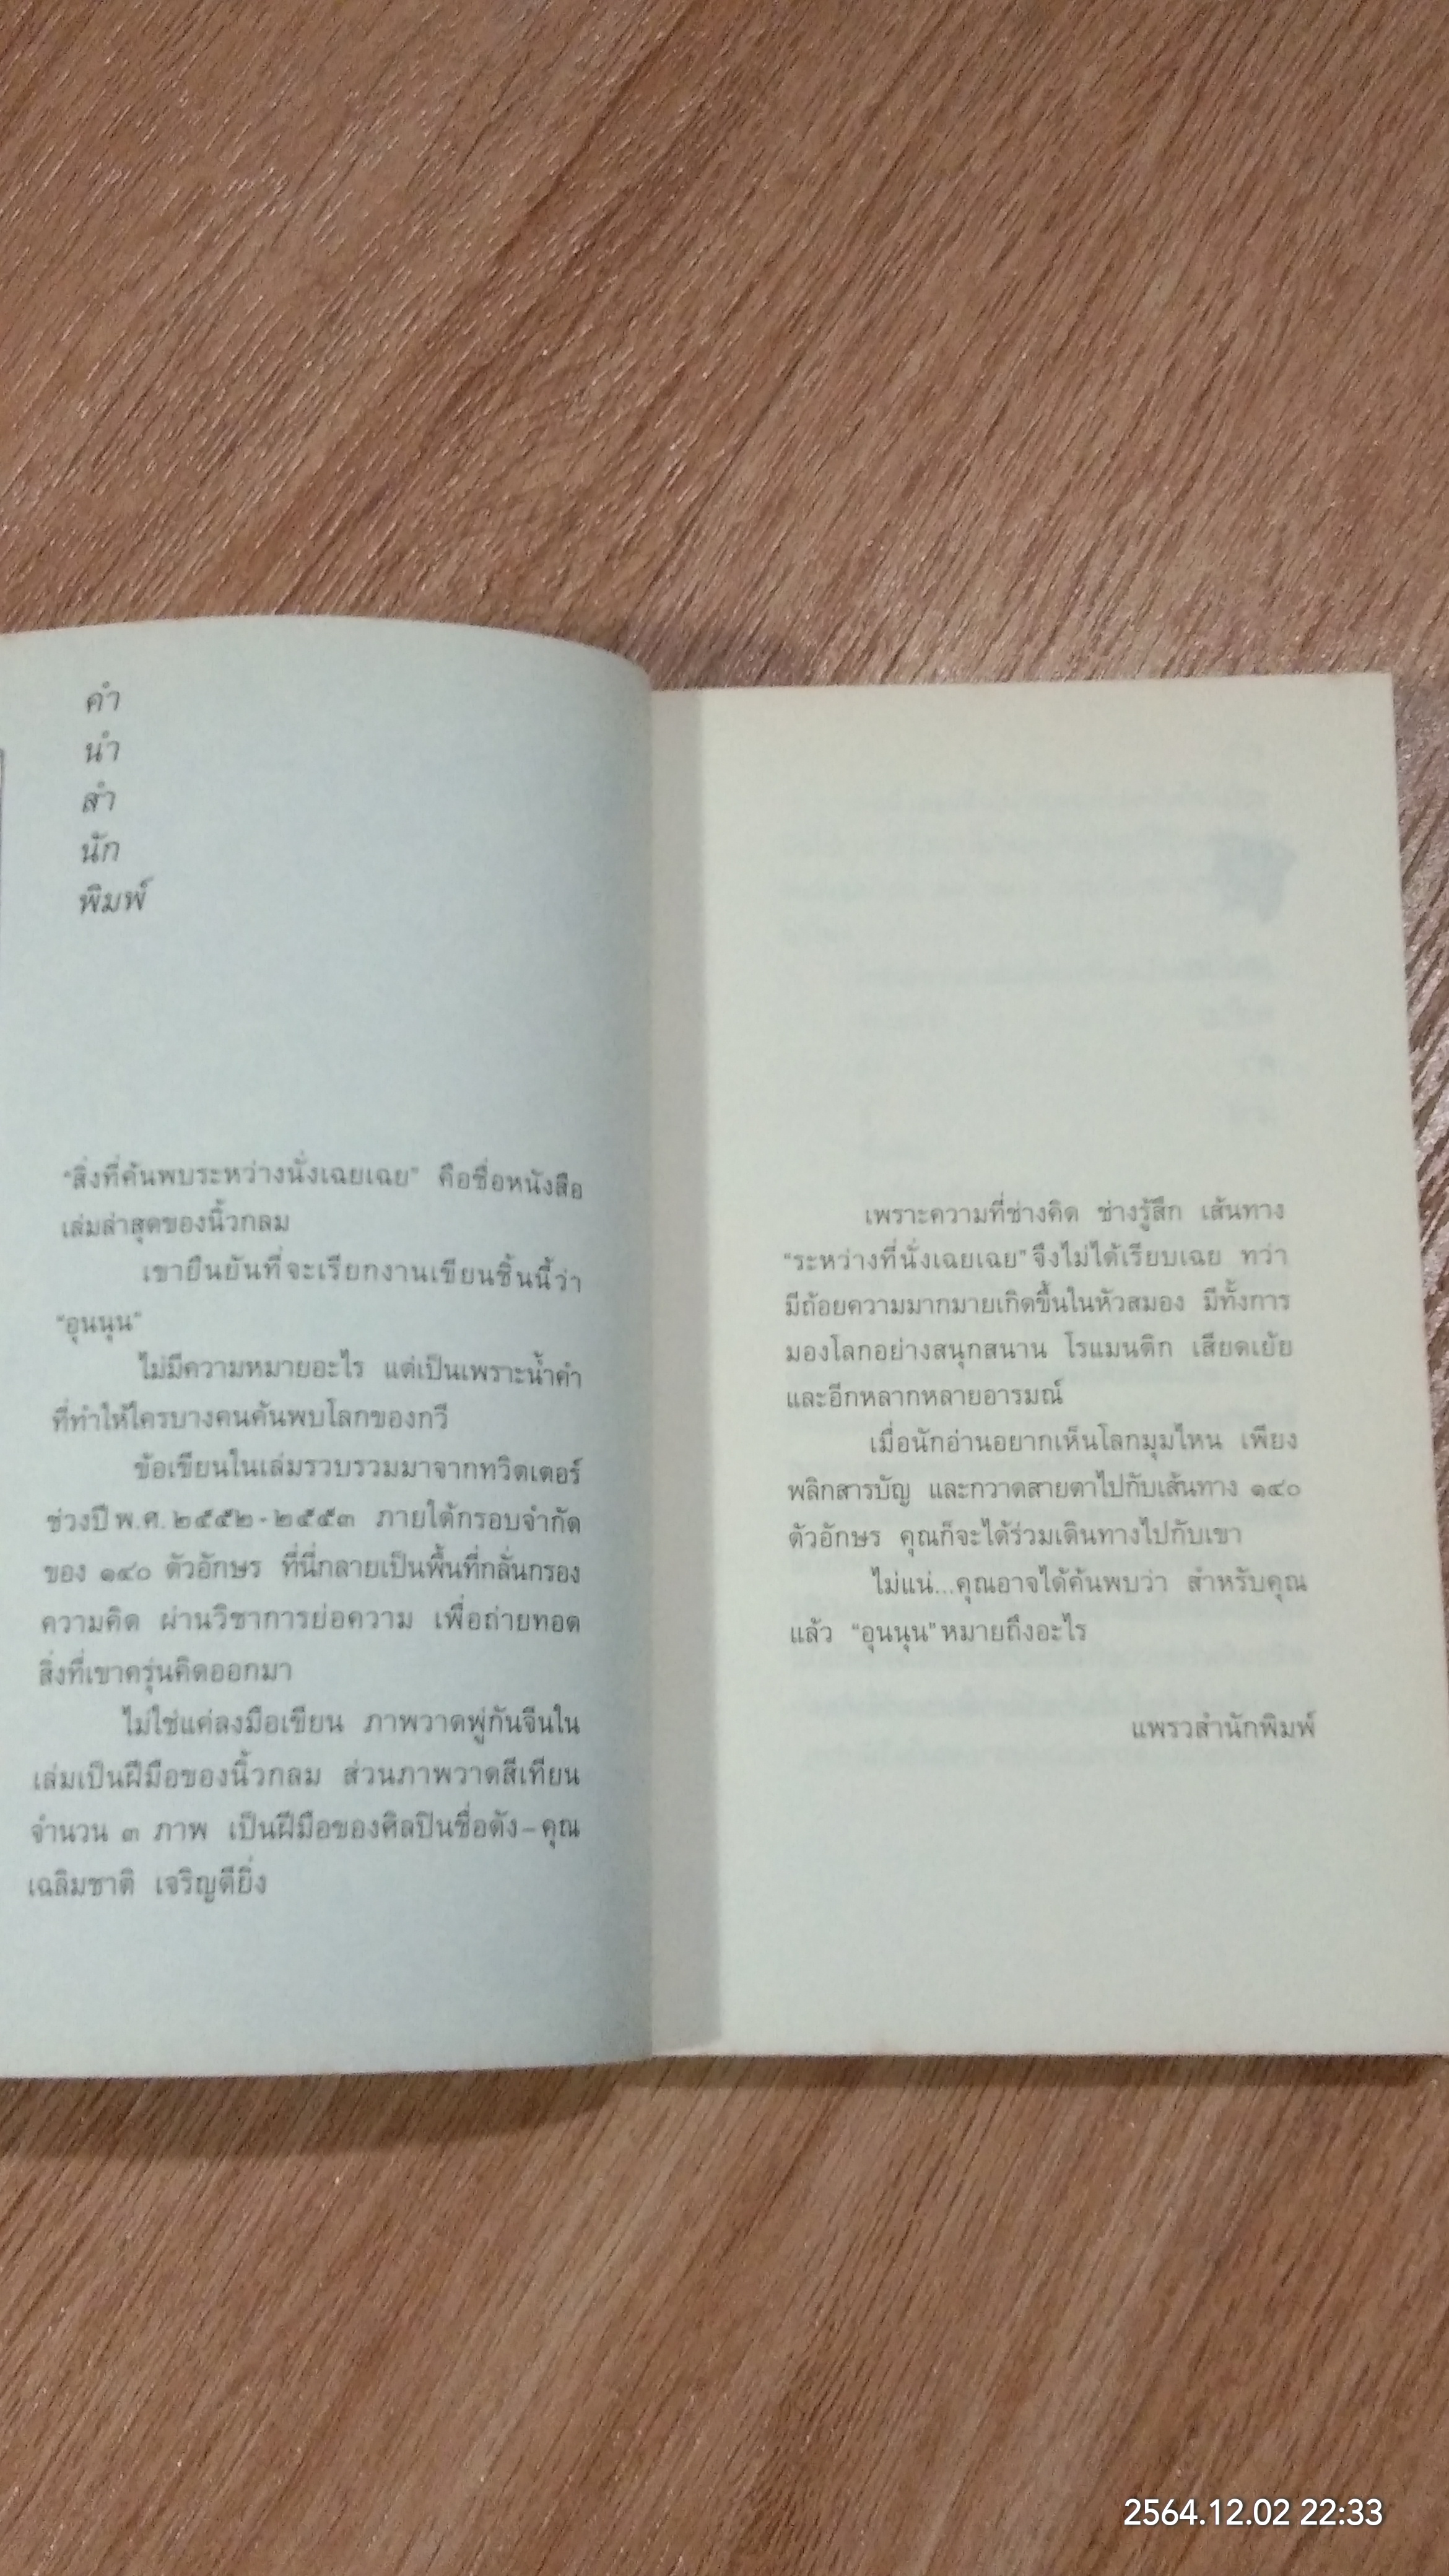 คำ
นำ
สำ
นัก
พิมพ์
“สิ่งที่ค้นพบระหว่างนั่งเฉยเฉย” คือชื่อหนังสือ
เล่มล่าสุดของนิ้วกลม
เขายืนยันที่จะเรียกงานเขียนชิ้นนี้ว่า
“อุนนุน”
ไม่มีความหมายอะไร แต่เป็นเพราะน้ำคำ
ที่ทำให้ใครบางคนค้นพบโลกของกวี
ข้อเขียนในเล่มรวบรวมมาจากทวิตเตอร์
ช่วงปี พ.ศ. ๒๕๕๒-๒๕๕๓ ภายใต้กรอบจำกัด
ของ ๑๔๐ ตัวอักษร ที่นี่กลายเป็นพื้นที่กลั่นกรอง
ความคิด ผ่านวิชาการย่อความ เพื่อถ่ายทอด
สิ่งที่เขาครุ่นคิดออกมา
ไม่ใช่แค่ลงมือเขียน ภาพวาดพู่กันจีนใน
เล่มเป็นฝีมือของนิ้วกลม ส่วนภาพวาดสีเทียน
จำนวน ๓ ภาพ เป็นฝีมือของศิลปินชื่อดัง–คุณ
เฉลิมชาติ เจริญดียิ่ง
เพราะความที่ช่างคิด ช่างรู้สึก เส้นทาง
“ระหว่างที่นั่งเฉยเฉย” จึงไม่ได้เรียบเฉย ทว่า
มีถ้อยความมากมายเกิดขึ้นในหัวสมอง มีทั้งการ
มองโลกอย่างสนุกสนาน โรแมนติก เสียดเย้ย
และอีกหลากหลายอารมณ์
เมื่อนักอ่านอยากเห็นโลกมุมไหน เพียง
พลิกสารบัญ และกวาดสายตาไปกับเส้นทาง ๑๔๐
ตัวอักษร คุณก็จะได้ร่วมเดินทางไปกับเขา
ไม่แน่...คุณอาจได้ค้นพบว่า สำหรับคุณ
แล้ว “อุนนุน” หมายถึงอะไร
แพรวสำนักพิมพ์
2564.12.02 22:33